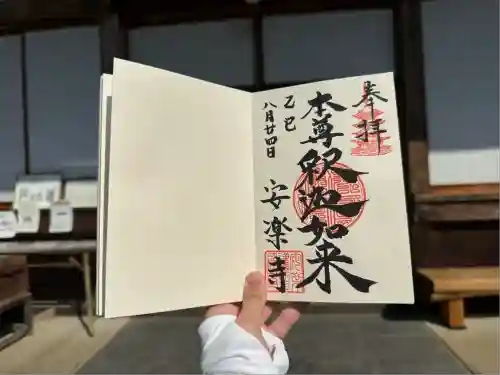 奉拝
本尊釈迦如来
乙巳
八月廿四日
安楽寺